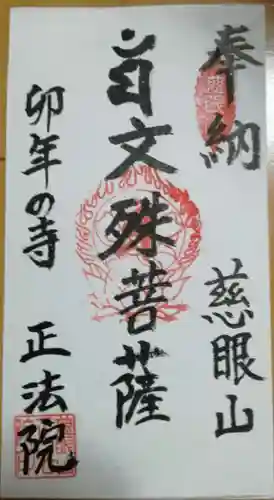 奉納
慈眼山
文殊菩薩
卯年の寺
正法院